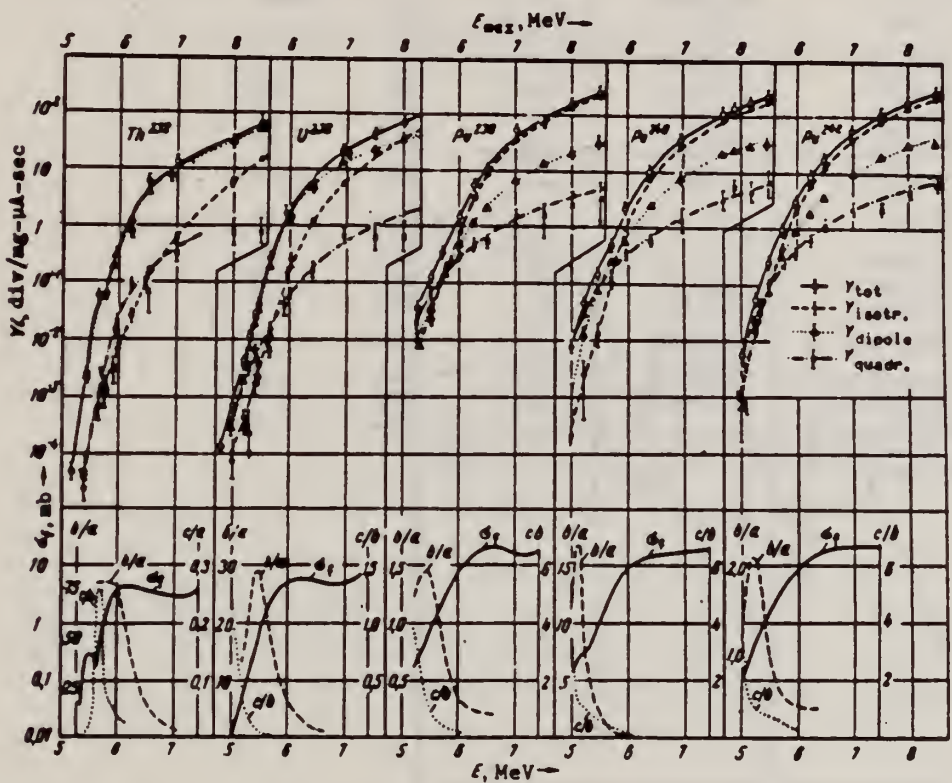 E max, MeV →
5 6 7 8 6 7 8 6 7 8 8 7 8 8 7 8
Y, div/mg-μA-sec
10²
10
1
Th 232
U 238
Pu 238
Pu 240
Pu 242
Y tot
Y isotr.
Y dipole
Y quadr.
σf, mb →
b/a c/a b/a c/b b/a c/b b/a c/b b/a c/b
b/a σf b/a σf b/a σf b/a σf b/a σf
10
1
0,1
0,01
75
50
25
0,3
0,2
0,1
30
20
10
1,5
1,0
0,5
1,5
1,0
0,5
6
4
2
15
10
5
6
4
2
2,0
1,0
6
4
2
c/b c/b c/b
5 6 7 5 6 7 5 6 7 5 6 7 5 6 7 8
E, MeV →